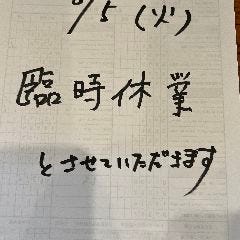 /5 (火)
臨時休業
とさせていただきます